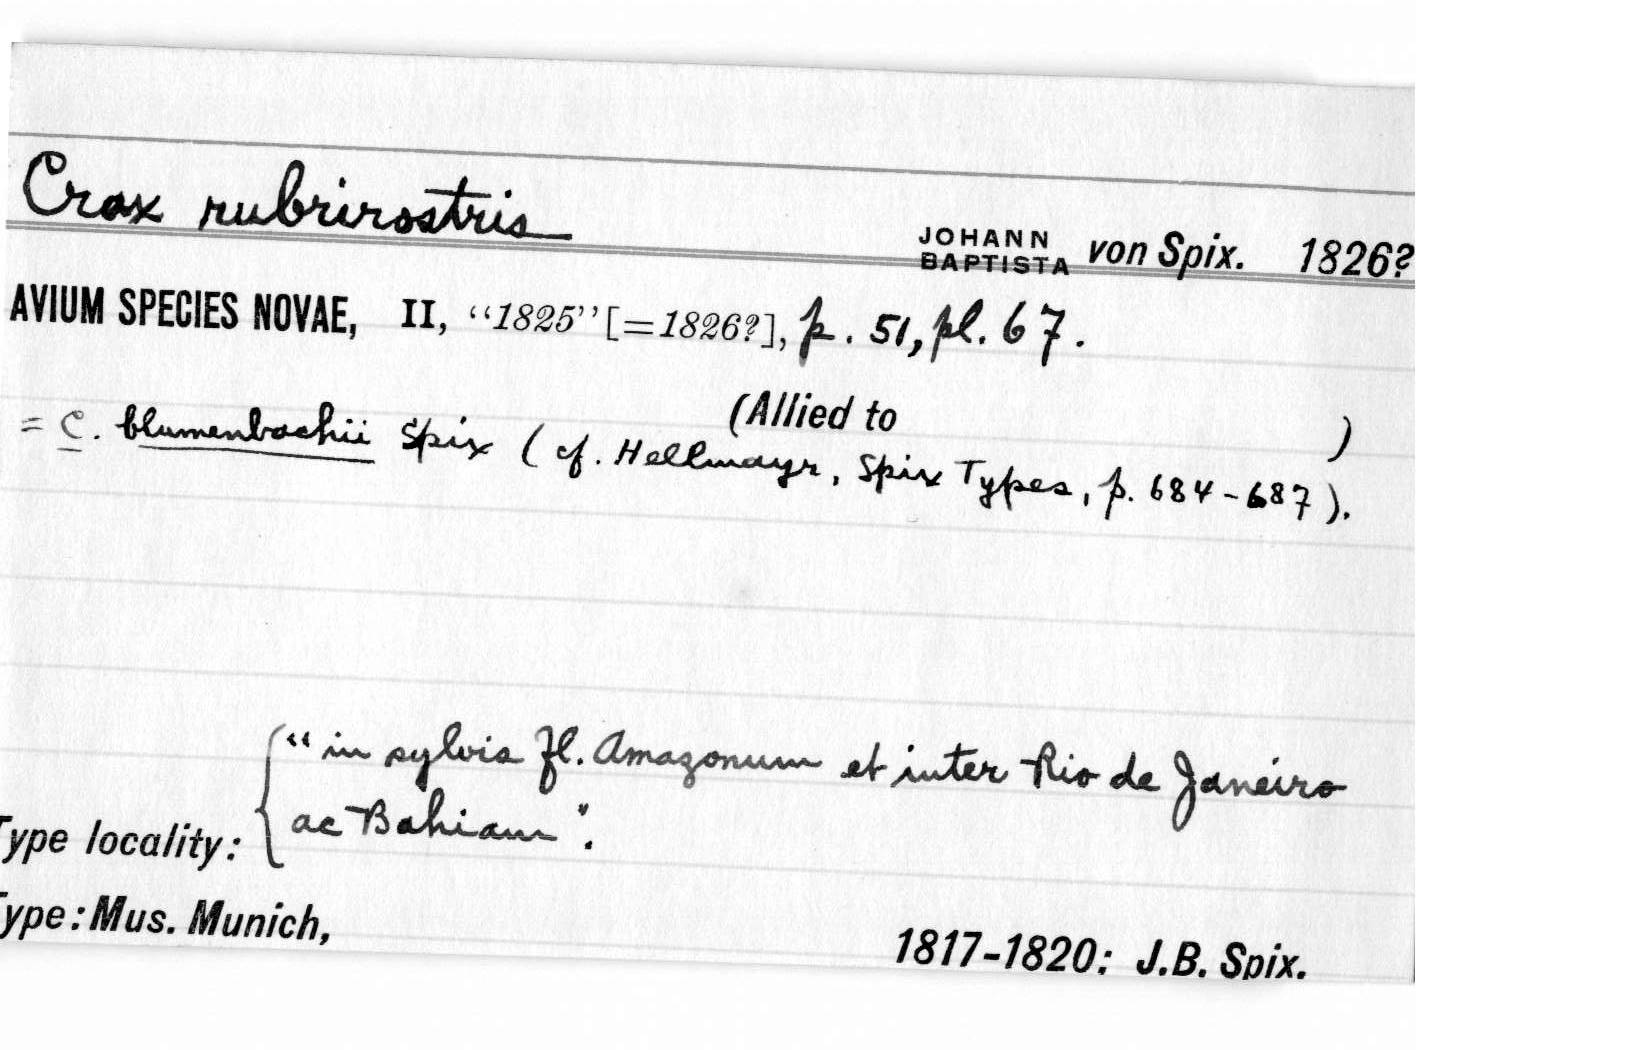 Crax rubrirostris
JOHANN BAPTISTA von Spix. 1826?
AVIUM SPECIES NOVAE, II, "1825" [=1826?], p. 51, pl. 67.
(Allied to )
= C. blumenbachii Spix (cf. Hellmayr, Spix Types, p. 684-687).
"in sylvis fl. Amazonum et inter Rio de Janeiro
ac Bahiam".
Type locality:
Type: Mus. Munich,
1817-1820; J.B. Spix.